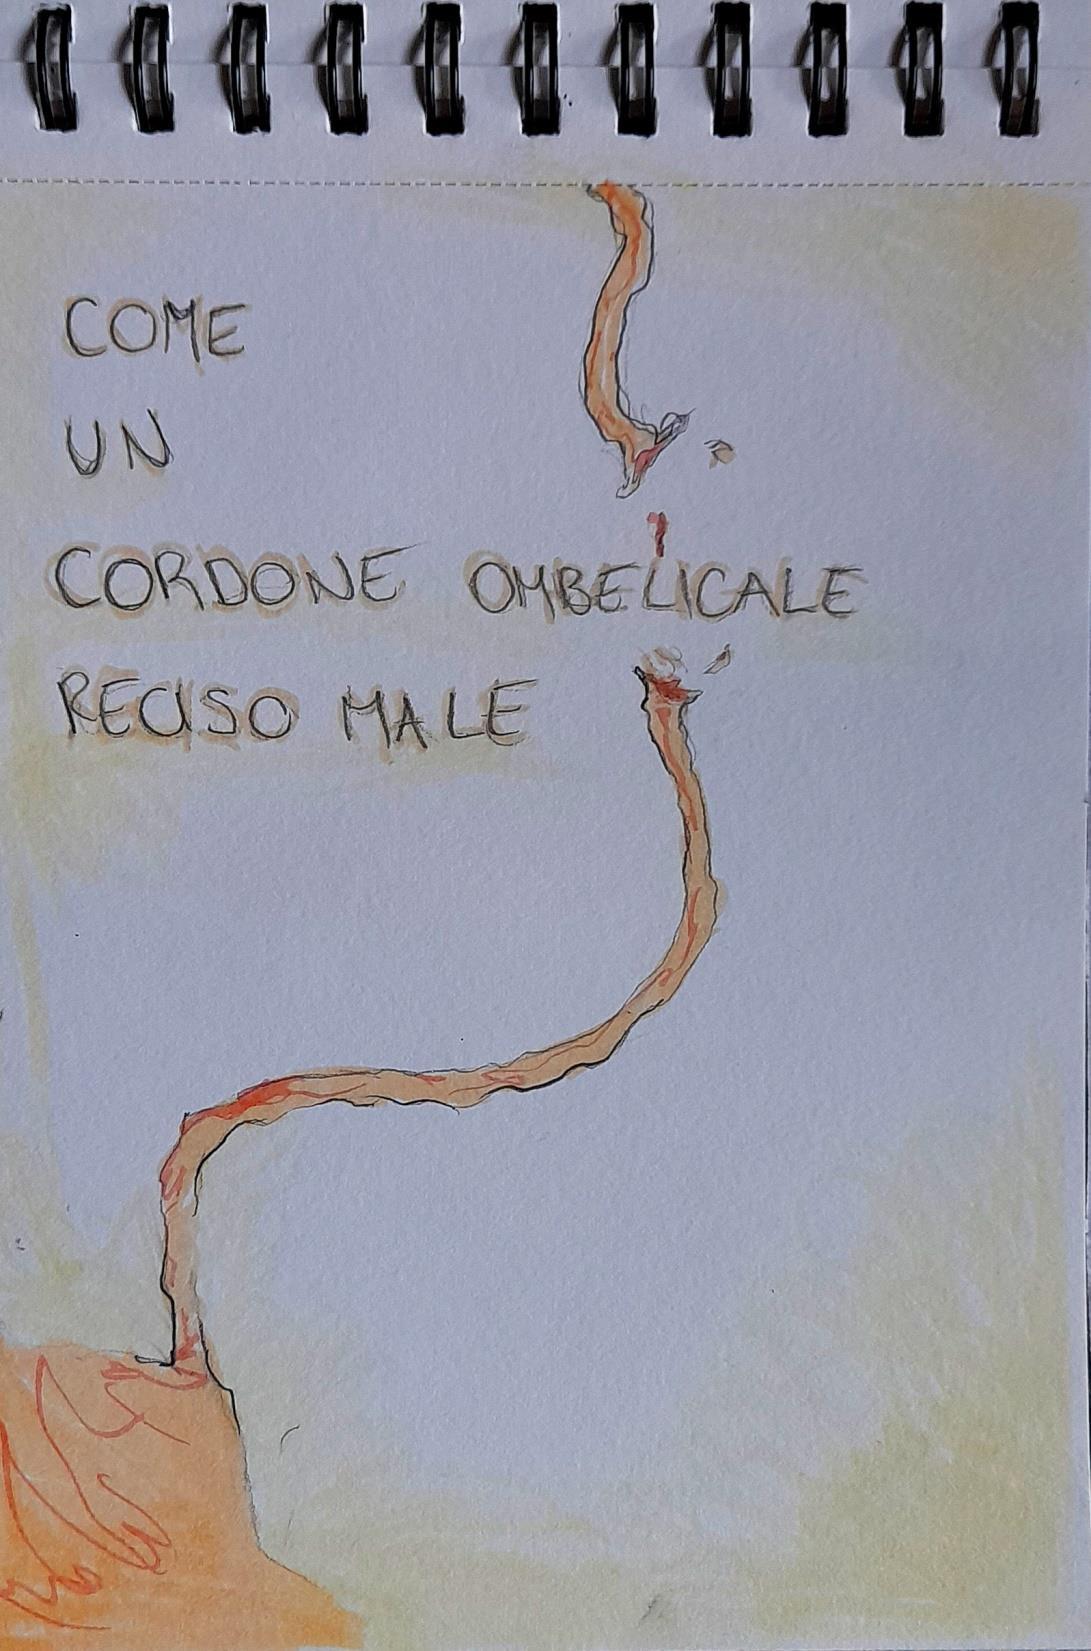 COME
UN
CORDONE OMBELICALE
RECISO MALE